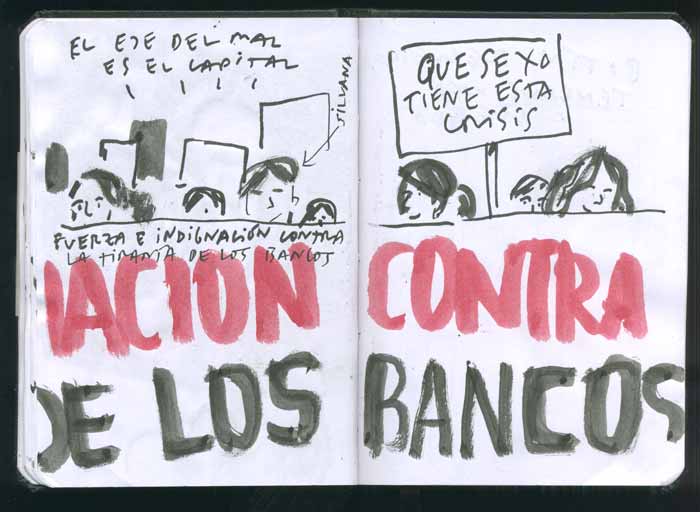 EL EJE DEL MAL
ES EL CAPITAL
SILVANA
FUERZA E INDIGNACIÓN CONTRA
LA TIRANÍA DE LOS BANCOS
QUE SEXO
TIENE ESTA
CRISIS
NACION CONTRA
DE LOS BANCOS